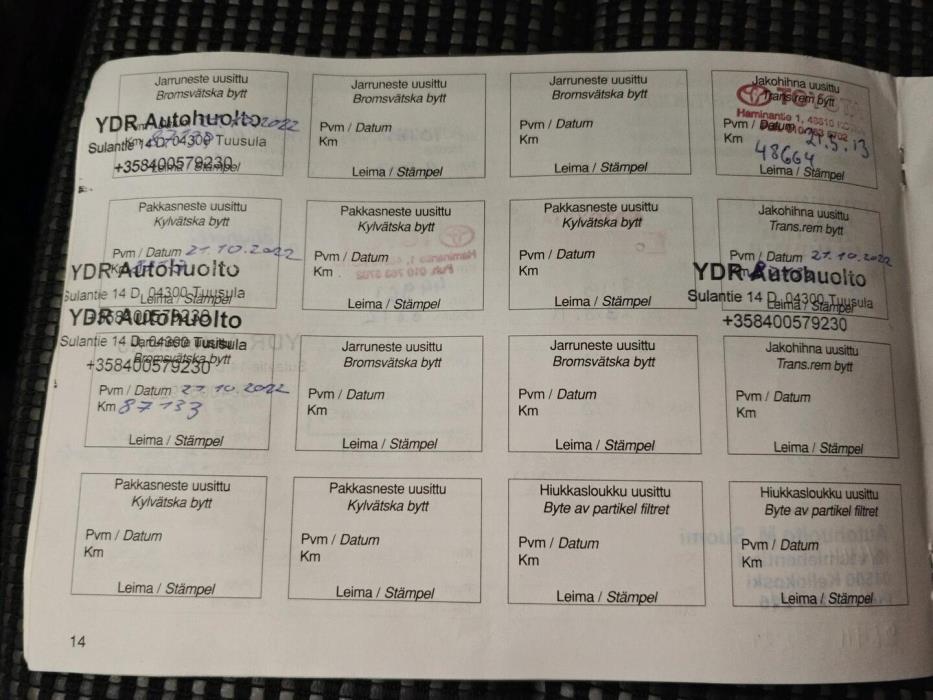 Jarruneste uusittu
Bromsvätska bytt
2022
YDR Autohuolto
Sulantie 14 D, 04300 Tuusula
+358400579230
Leima / Stämpel
Jarruneste uusittu
Bromsvätska bytt
Pvm / Datum
Km
Leima / Stämpel
Jarruneste uusittu
Bromsvätska bytt
Pvm / Datum
Km
Leima / Stämpel
Jakohihna uusittu
Trans.rem bytt
TOYOTA
Haminantie 1,
Pvm / Datum 21.5.13
Km 48664
Leima / Stämpel
Pakkasneste uusittu
Kylvätska bytt
Pvm / Datum 21.10.2022
YDR Autohuolto
Leima / Stämpel
Sulantie 14 D, 04300 Tuusula
+358400579230
Pakkasneste uusittu
Kylvätska bytt
Pvm / Datum
Km
Leima / Stämpel
Pakkasneste uusittu
Kylvätska bytt
Pvm / Datum
Km
Leima / Stämpel
Jakohihna uusittu
Trans.rem bytt
Pvm / Datum 21.10.2022
YDR Autohuolto
Leima / Stämpel
Sulantie 14 D, 04300 Tuusula
+358400579230
YDR Autohuolto
Jarruneste uusittu
Sulantie 14 D, 04300 Tuusula
Bromsvätska bytt
+358400579230
Pvm / Datum 21.10.2022
Km 87133
Leima / Stämpel
Jarruneste uusittu
Bromsvätska bytt
Pvm / Datum
Km
Leima / Stämpel
Jarruneste uusittu
Bromsvätska bytt
Pvm / Datum
Km
Leima / Stämpel
Jakohihna uusittu
Trans.rem bytt
Pvm / Datum
Km
Leima / Stämpel
Pakkasneste uusittu
Kylvätska bytt
Pvm / Datum
Km
Leima / Stämpel
Pakkasneste uusittu
Kylvätska bytt
Pvm / Datum
Km
Leima / Stämpel
Hiukkasloukku uusittu
Byte av partikel filtret
Pvm / Datum
Km
Leima / Stämpel
Hiukkasloukku uusittu
Byte av partikel filtret
Pvm / Datum
Km
Leima / Stämpel
14